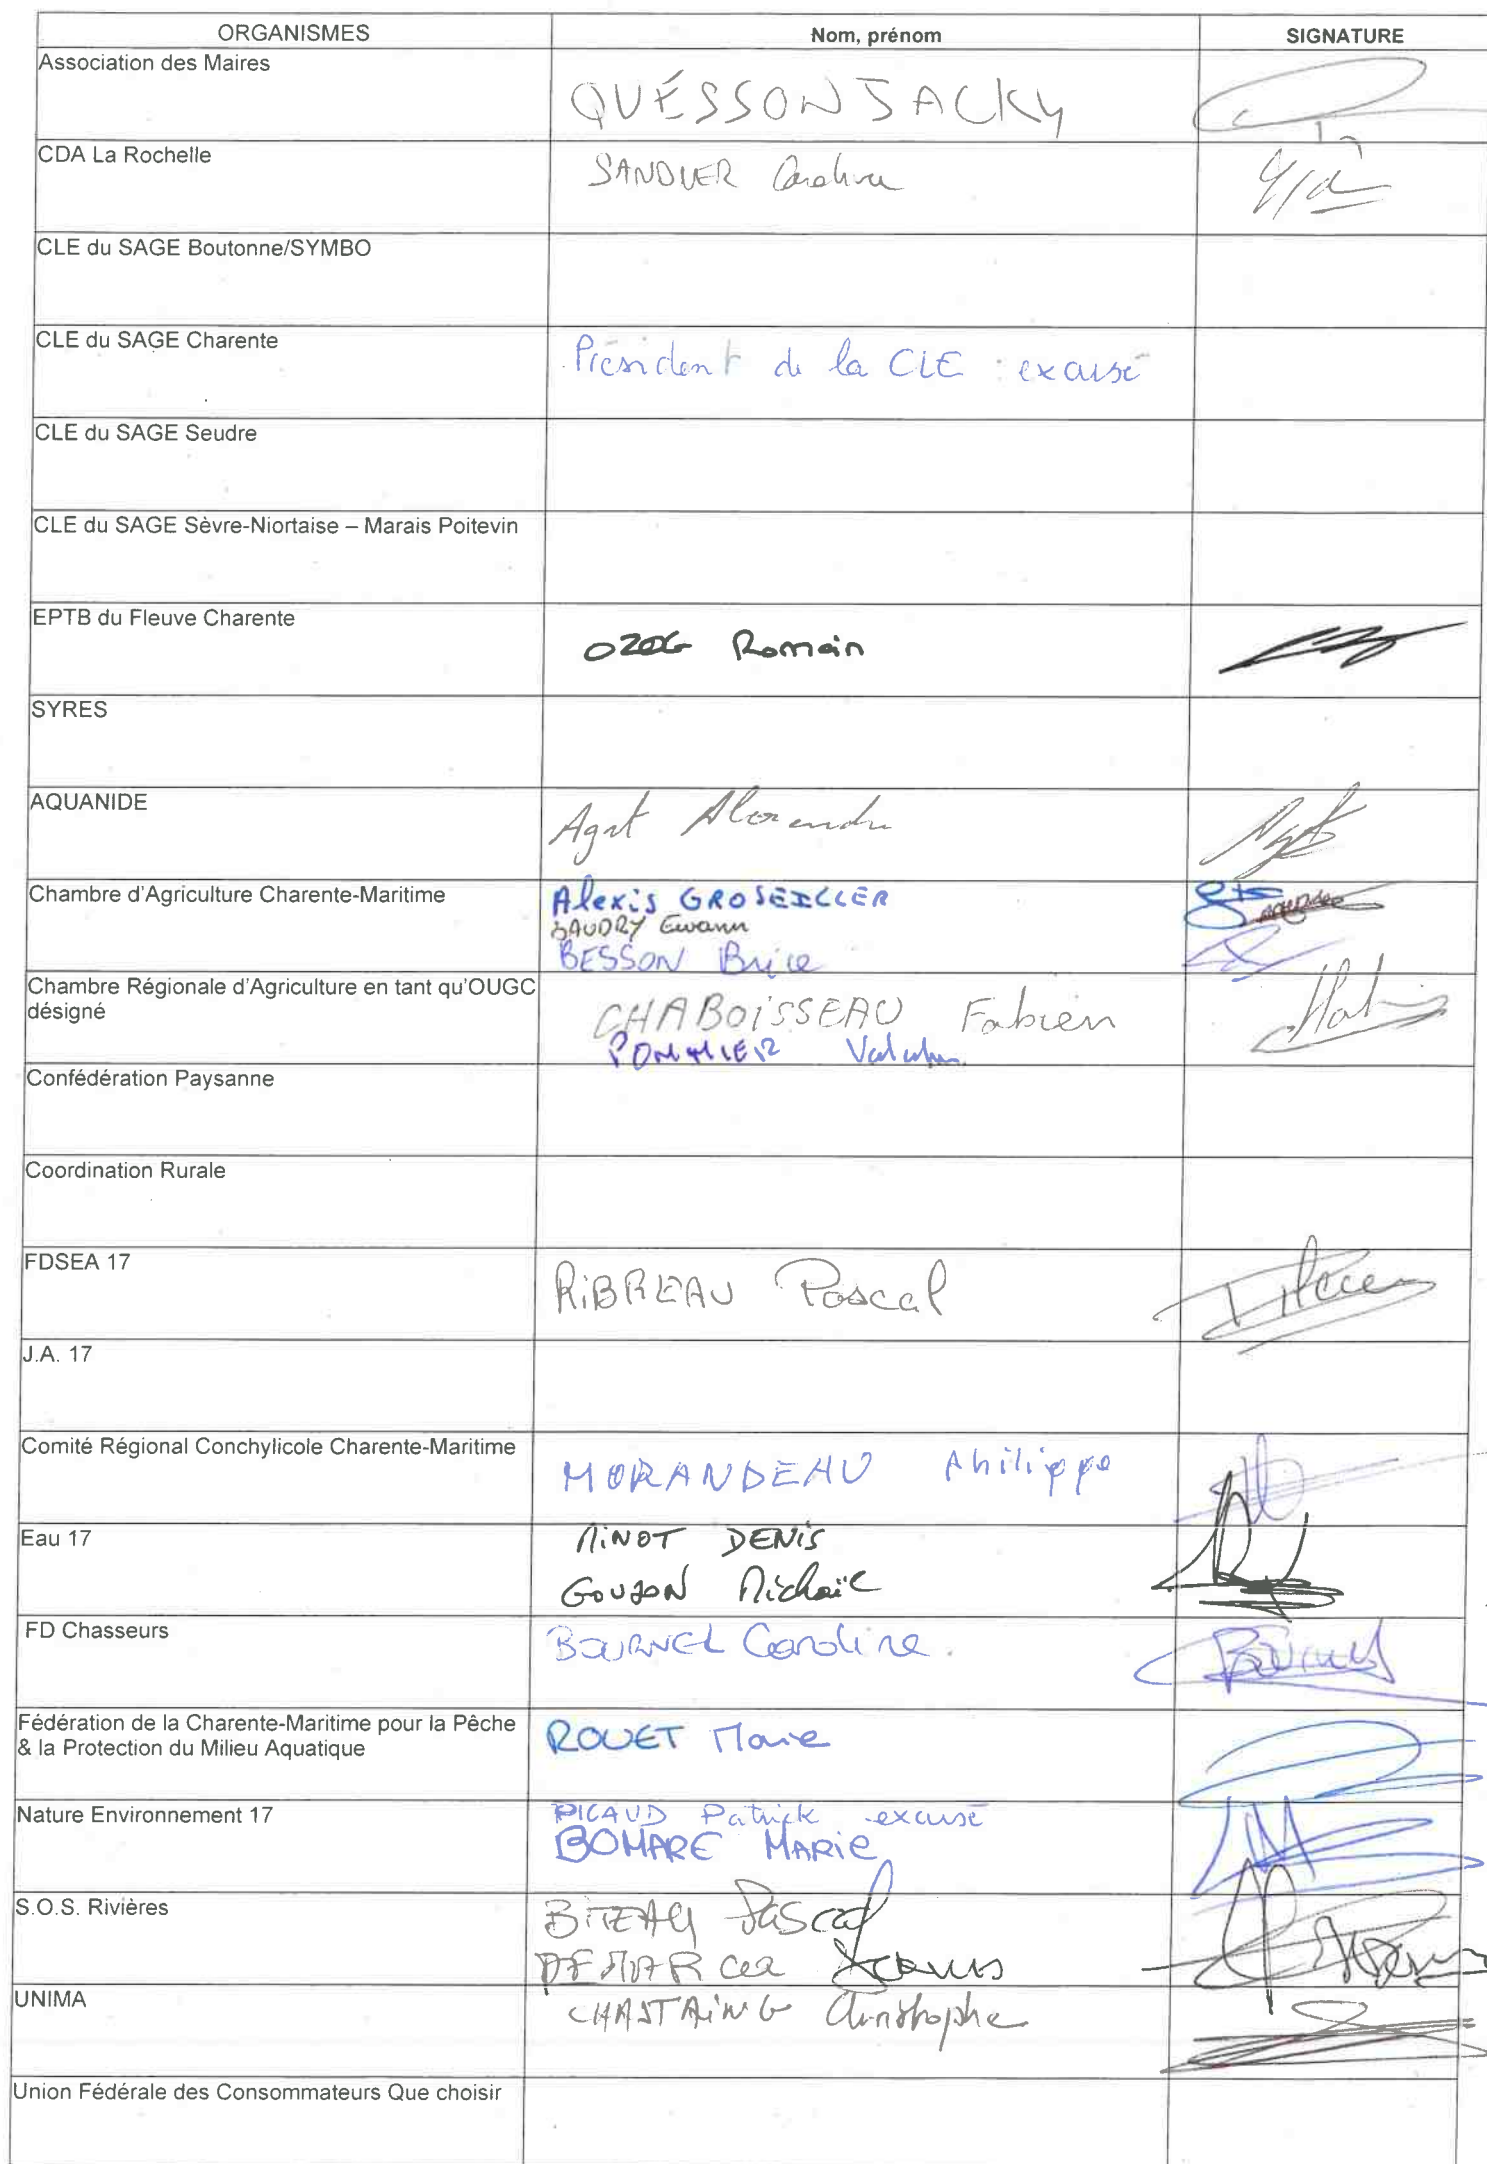 ORGANISMES Nom, prénom SIGNATURE
Association des Maires
QUÉSSON JACKY
CDA La Rochelle
SANDLER
CLE du SAGE Boutonne/SYMBO
CLE du SAGE Charente
Président de la CLE : excusé
CLE du SAGE Seudre
CLE du SAGE Sèvre-Niortaise – Marais Poitevin
EPTB du Fleuve Charente
OZOG Romain
SYRES
AQUANIDE
Agat Alexandre
Chambre d'Agriculture Charente-Maritime
Alexis GROSEILLER
GAUDRY Ewann
BESSON Brice
Chambre Régionale d'Agriculture en tant qu'OUGC
désigné
CHABOISSEAU Fabien
POMMIER
Confédération Paysanne
Coordination Rurale
FDSEA 17
RiBREAU Pascal
J.A. 17
Comité Régional Conchylicole Charente-Maritime
MORANDEAU Philippe
Eau 17
MiNOT DENiS
GOUJON Michaël
FD Chasseurs
BOURNEL Caroline.
Fédération de la Charente-Maritime pour la Pêche
& la Protection du Milieu Aquatique
ROUET Marie
Nature Environnement 17
PICAUD Patrick excusé
BOMARE MARiE
S.O.S. Rivières
BiTEAU Pascal
UNIMA
CHASTAiNG Christophe
Union Fédérale des Consommateurs Que choisir